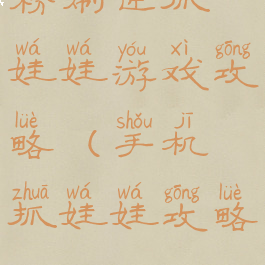 wá wá yóu xì gōng
娃娃游戏攻
lüè shǒu jī
略（手机
zhuā wá wá gōng lüè
抓娃娃攻略